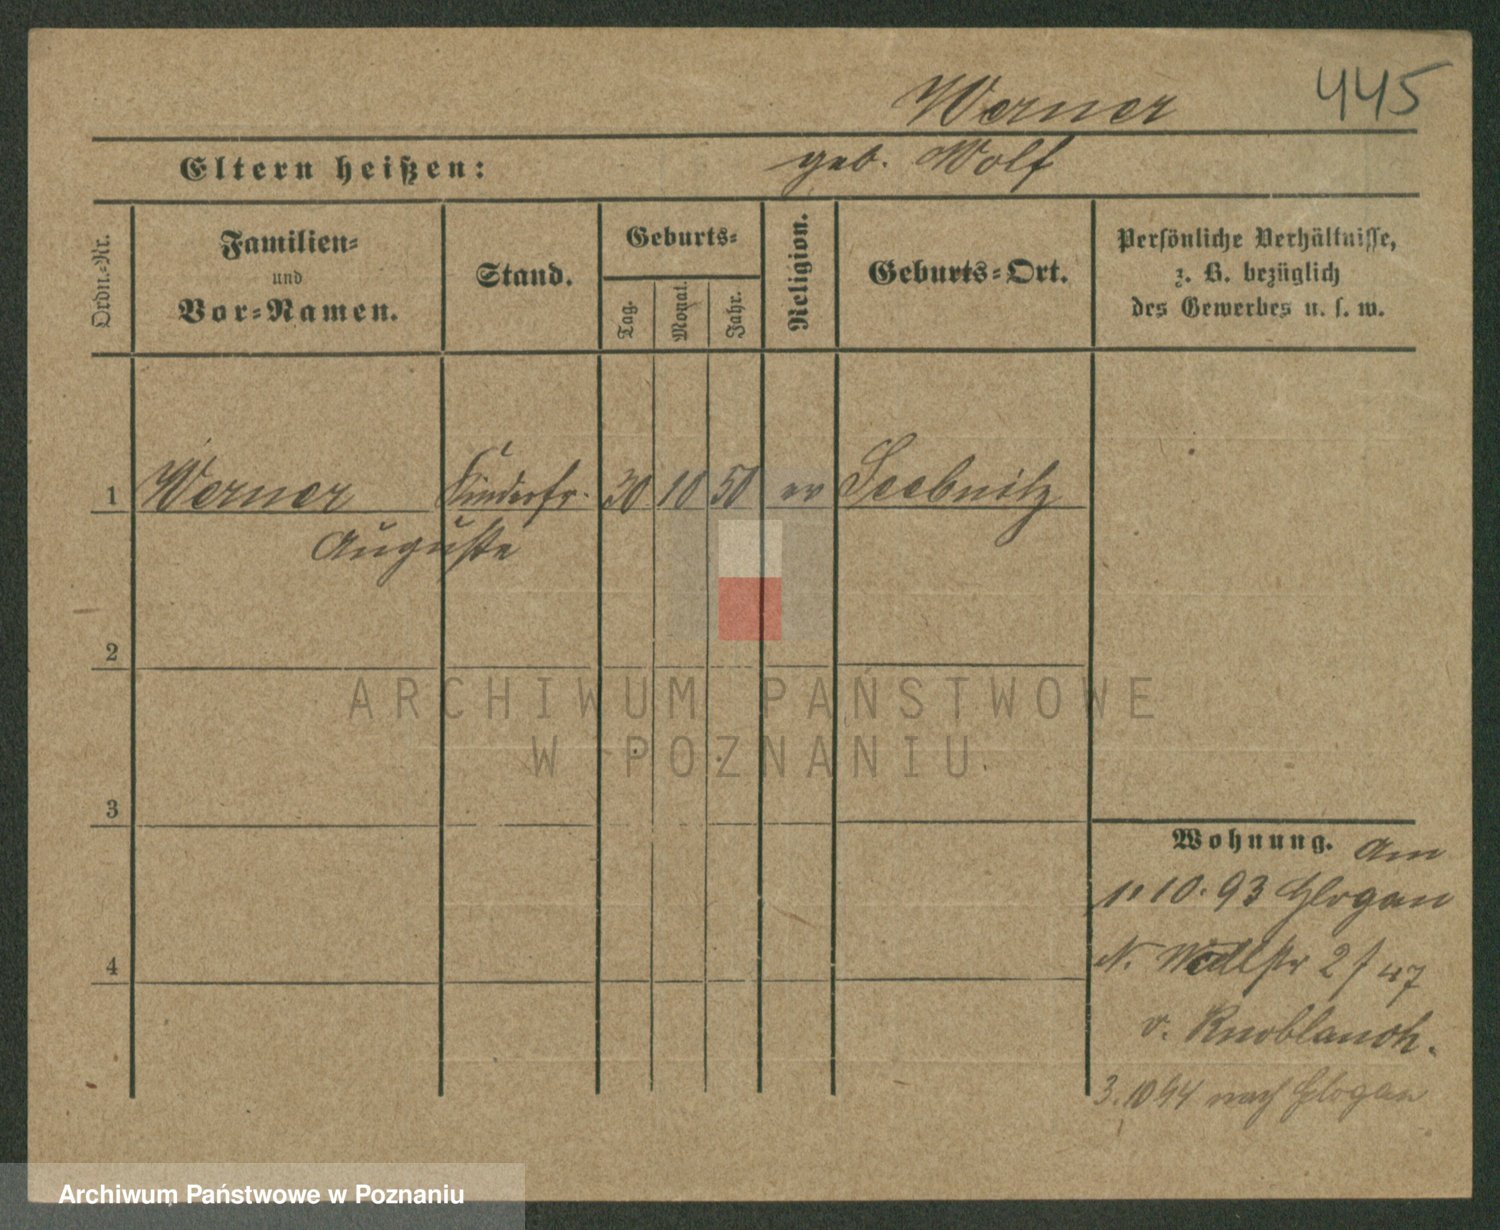 445
Werner
Eltern heißen: geb. Wolf
Ordn.-Nr.
Familien-
und
Vor-Namen.
Stand.
Geburts-
Tag.
Monat.
Jahr.
Religion.
Geburts-Ort.
Persönliche Verhältnisse,
z. B. bezüglich
des Gewerbes u. s. w.
1 Werner Kinderfr. 30 10 50 ev Seebnitz
Auguste
2
3
4
Wohnung. Am
1. 10. 93 Glogau
N. 2
v. Knoblauch.
3. 10 94 nach Glogau
ARCHIWUM PAŃSTWOWE
W POZNANIU
Archiwum Państwowe w Poznaniu